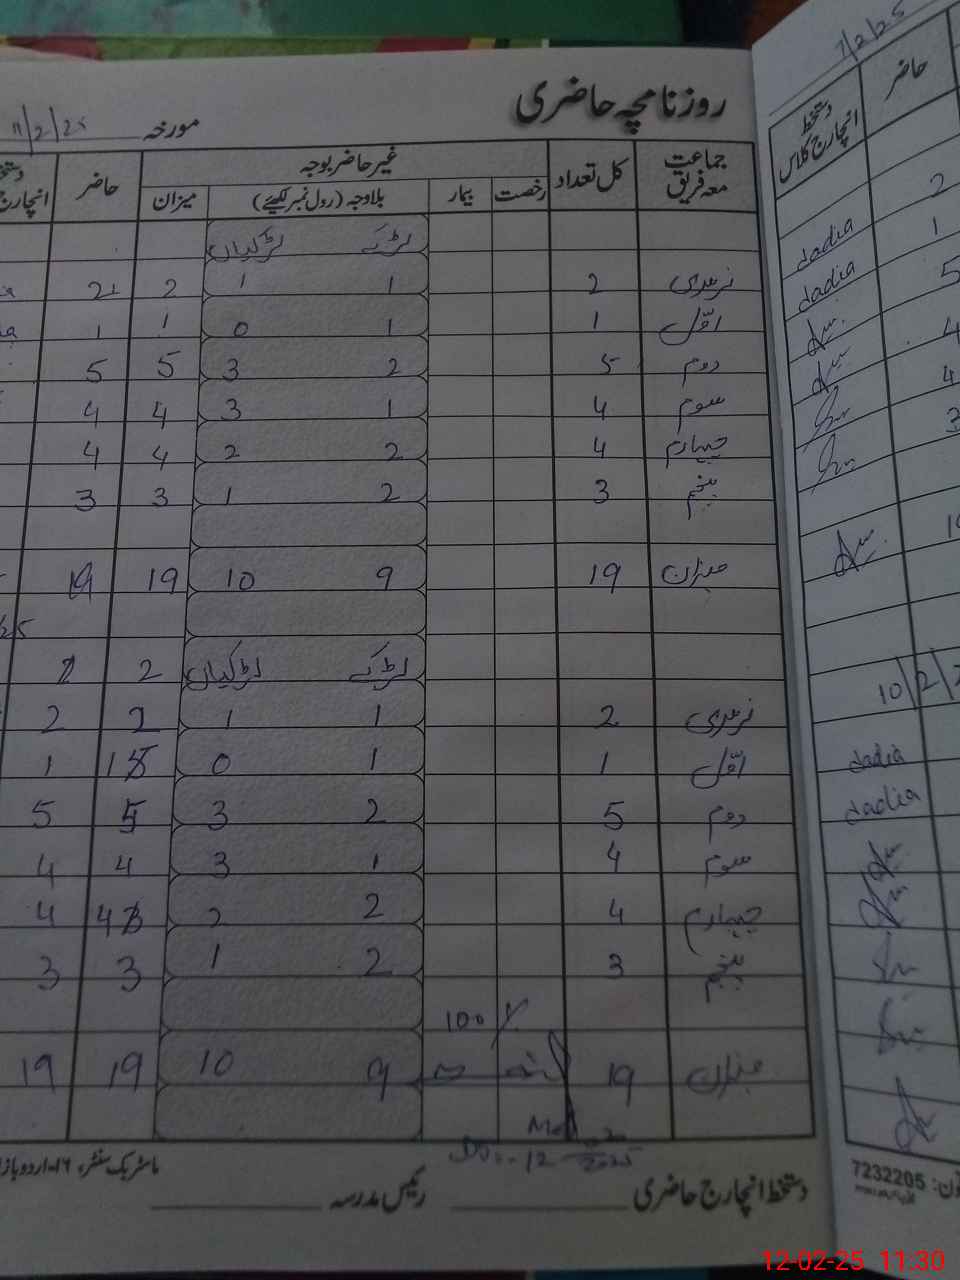 روزنامچہ حاضری
مورخہ 11/2/25
جماعت معہ فریق کل تعداد غیر حاضر بوجہ حاضر دستخط انچارج
رخصت بیمار بلاوجہ (رول نمبر لکھیئے) میزان
لڑکے لڑکیاں
نرسری 2 1 1 2 2
اوّل 1 1 0 1 1
دوم 5 2 3 5 5
سوم 4 1 3 4 4
چہارم 4 2 2 4 4
پنجم 3 2 1 3 3
میزان 19 9 10 19 19
لڑکے لڑکیاں 2 2
نرسری 2 1 1 2 2
اوّل 1 1 0 1 1
دوم 5 2 3 5 5
سوم 4 1 3 4 4
چہارم 4 2 2 4 4
پنجم 3 2 1 3 3
100 %
میزان 19 9 10 19 19
دستخط انچارج حاضری ____ رئیس مدرسہ ____
7/2/25
حاضر دستخط انچارج کلاس
2
1 dadia
5 dadia
4
4
3
10/2/2
dadia
dadia
فون: 7232205
12-02-25 11:30